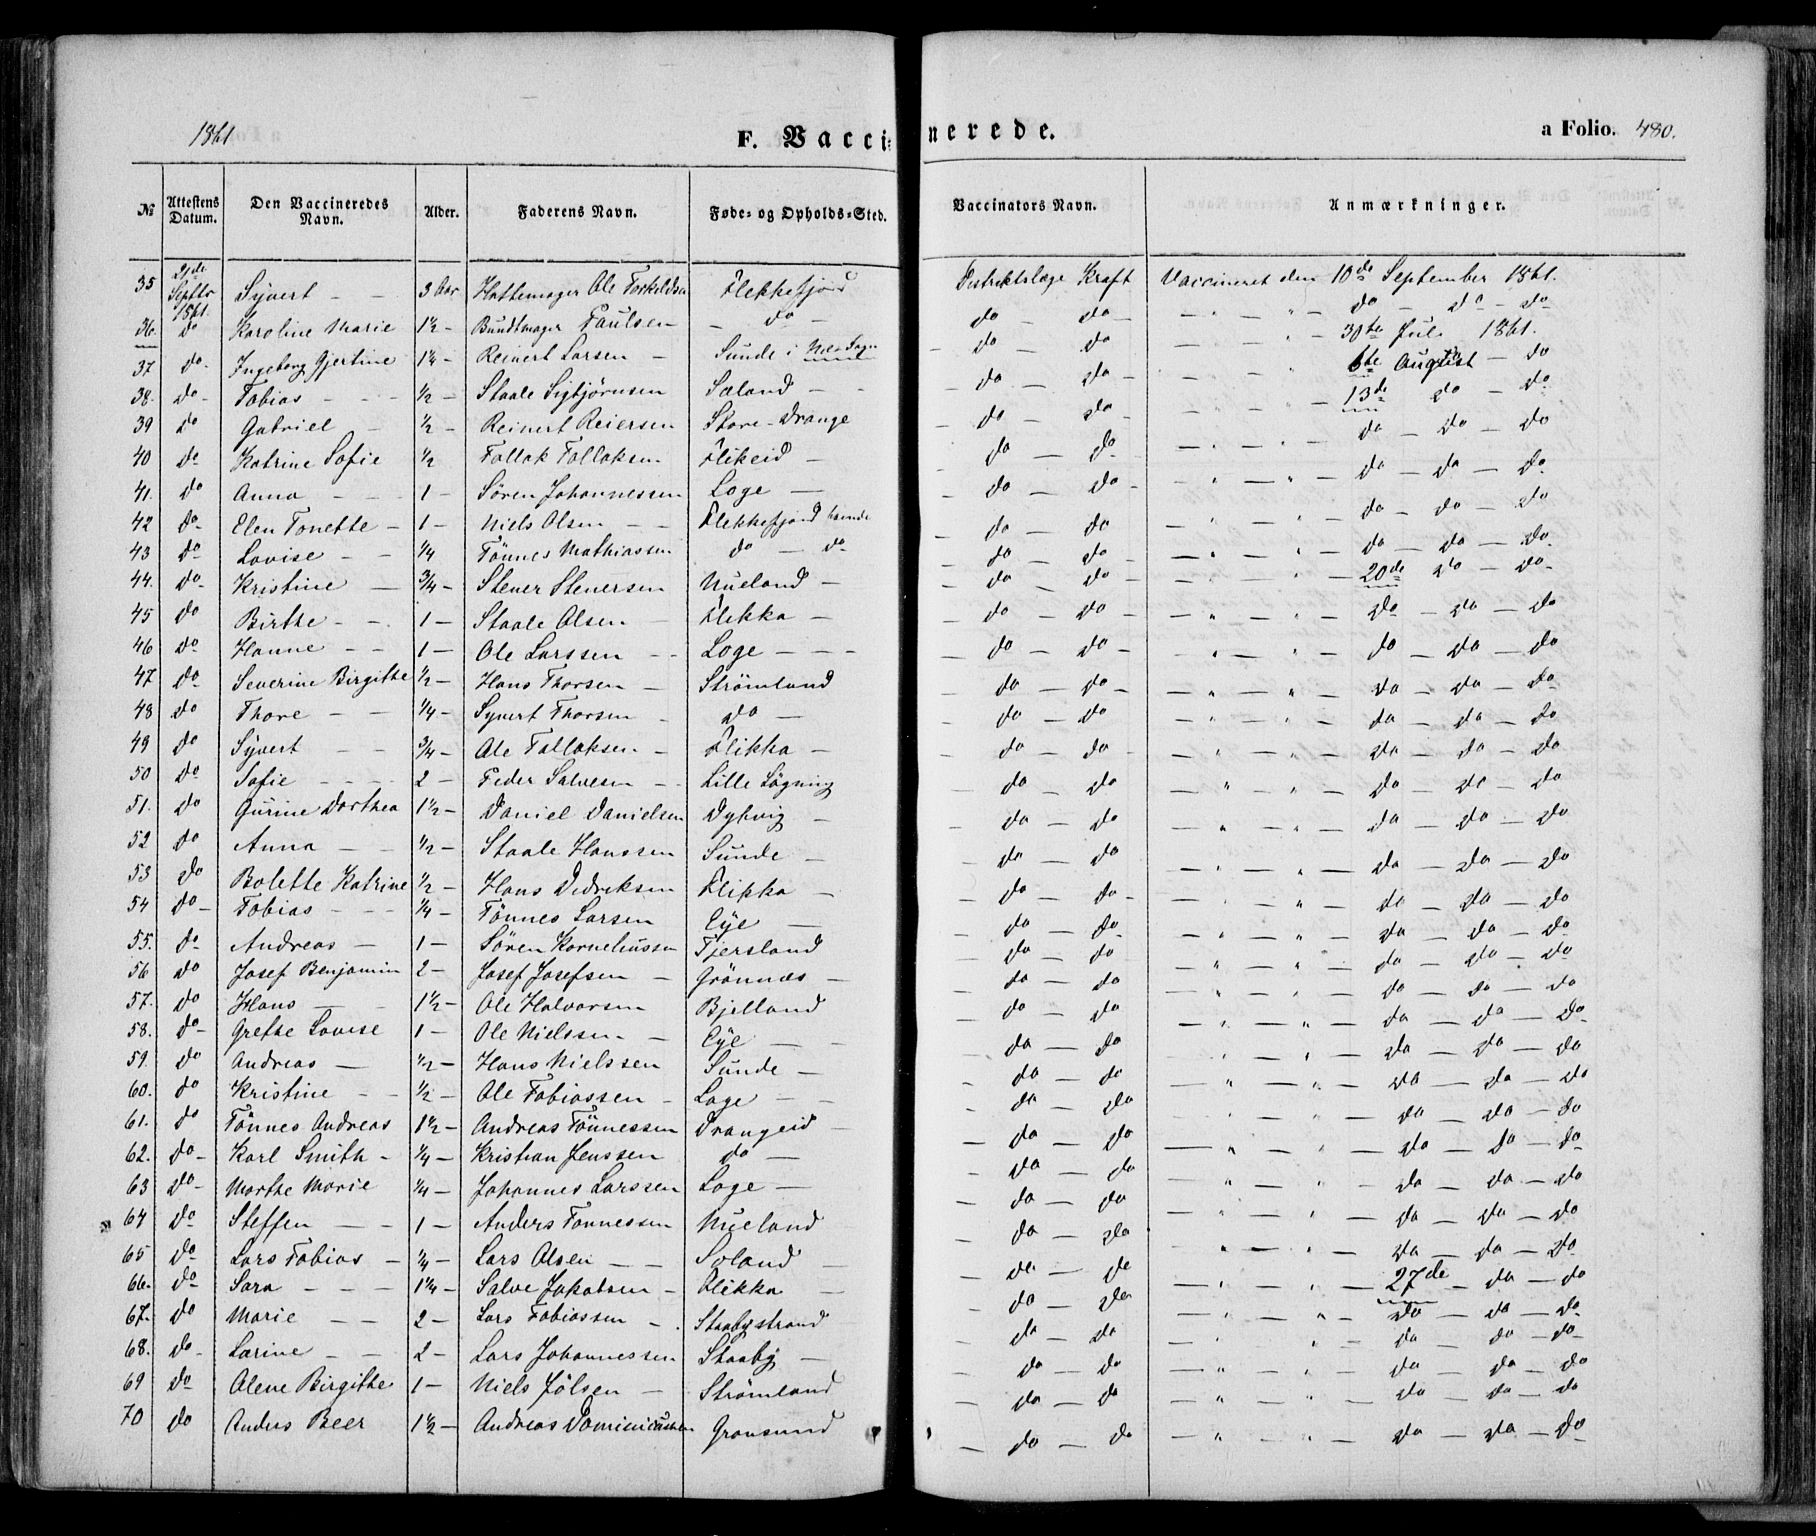 1861
F. Vaccinerede.
a Folio. 480.
№ | Attestens Datum. | Den Vaccineredes Navn. | Alder. | Faderens Navn. | Føde- og Opholds-Sted. | Vaccinators Navn. | Anmærkninger.
35 | 21de Septbr 1861. | Syvert - - | 3 Aar | Hattemager Ole Torkeldsen | Flekkefjord | Distriktslæge Kraft | Vaccineret den 10de September 1861.
36. | do | Karoline Marie | 1½ - | Bundtmager Paulsen | - do - | do - do | - " " - do - do - do
37 | do. | Ingeborg Gjertine | 1¼ - | Reinert Larsen - | Sunde i Nes Sogn | - do - do | - " " - 30te Juli 1861.
38. | do - | Tobias - - - | ½ - | Staale Sigbjørnsen | Sæland - - | do - do - | - " " - 6te August - do
39 | do | Gabriel - | ½ - | Reinert Reiersen | Store-Drange | do - do | - " " - 13de do - do
40 | do | Katrine Sofie | ½ | Tollak Tollaksen | Flikeid - | - do - do | - " - " - do - do - do
41. | do | Anna - - - | 1 - | Sören Johannessen | Loge - | - do - do - | - " - " - do - do - do
42 | do - | Elen Tonette - | 1 - | Niels Olsen - - | Flekkefjord | - do - do | - " - " - do - do - do
43 | do | Lovise - - | ¼ | Tönnes Mathiassen | do - do | - do - do - | - " - " - do - do - do
44. | do - | Kristine - | ¾ - | Stener Stenersen | Nueland - | - do - do - | - " " - 20de do - do
45 | do | Birthe - - | 1 - | Staale Olsen - | Flikka - | - do - do - | - " - " - do - do - do
46 | do | Hanne - - | 1 - | Ole Larssen - - | Loge - - - | - do - do | - " - " - do - do - do
47 | do | Severine Birgithe | ½ - | Hans Thorsen - | Strømland | - do - do - | - " - " - do - do - do
48 | do | Thore - - | ¼ - | Syvert Thorsen - | do - | - do - do | - " - " - do - do - do
49 | do | Syvert - - | ¾ - | Ole Tollaksen - | Flikka - | - do - do - | - " - " - do - do - do
50 | do | Sofie - - - | 2 - | Peder Salvesen - - | Lille Lögning | - do - do | - " - " - do - do - do
51. | do | Gurine Dorthea | 1½ - | Daniel Danielsen | Dybvig - | - do - do | - " - " - do - do - do
52 | do | Anna - - | ½ - | Staale Hanssen | Sunde - | - do - do | - " - " - do - do - do
53 | do | Bolette Katrine | ½ - | Hans Didriksen | Flikka - | - do - do - | - " - " - do - do - do
54 | do - | Tobias - - - | ¼ - | Tönnes Larsen | Eye - | - do - do - | - " - " - do - do - do
55. | do | Andreas - | 1 - | Sören Korneliussen | Tjersland | - do - do | - " - " - do - do - do
56 | do | Josef Benjamin | 2 - | Josef Josefsen - | Grönnæs - | - do - do | - " - " - do - do - do
57. | do | Hans - - | 1½ - | Ole Halvorsen | Bjelland | - do - do | - " - " - do - do - do
58. | do - | Grethe Lovise | 1 - | Ole Nielssen - - | Eye - - | - do - do | - " - " - do - do - do
59. | do | Andreas - | ½ - | Hans Nielssen | Sunde - | - do - do | - " - " - do - do - do
60. | do | Kristine - - | ½ - | Ole Tobiassen - | Loge - - | - do - do | - " - " - do - do - do
61. | do | Tönnes Andreas | 1½ - | Andreas Tönnessen | Drangeid - | - do - do | - " - " - do - do - do
62. | do - | Karl Smith - | ¼ - | Kristian Jenssen | do - | - do - do | - " - " - do - do - do
63 | do - | Marthe Marie | ¼ - | Johannes Larssen | Loge - | - do - do | - " - " - do - do - do
64 | do | Steffen - - | 1 - | Anders Tönnessen | Nueland | - do - do | - " - " - do - do - do
65 | do | Lars Tobias - | ¼ - | Lars Olsen - - | Soland - | - do - do | - " - " - do - do - do
66. | do | Sara - - - | 1¼ - | Salve Jakobsen - | Flikka - | - do - do | - " - " - 27de - do - do
67. | do | Marie - - | 2 - | Lars Tobiassen - | Staabystrand | - do - do | - " - " - do - do - do
68. | do - | Larine - - | 2 - | Lars Johannessen | Staaby - | - do - do | - " - " - do - do - do
69 | do | Alene Birgithe | 1 - | Niels Jölsen - | Strömland | - do - do | - " - " - do - do - do
70 | do | Anders Beer | 1½ - | Andreas Dominicussen | Gronsund | - do - do | - " - " - do - do - do